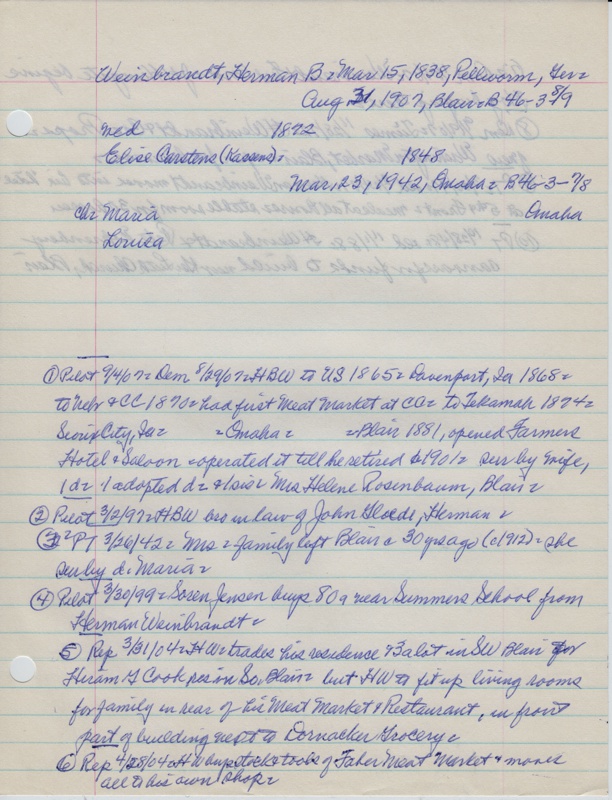 Weinbrandt, Herman B = Mar 15, 1838, Pellworm, Ger =
Aug 31, 1907, Blair = B 46-3-8/9
med 1872
Elise Carstens (Kassens) = 1848
Mar, 23, 1942, Omaha = B46-3-7/8
ch = Maria Omaha
Louisa
① Pilot 9/4/07 = Dem 8/29/07 = HBW to US 1865 = Davenport, Ia 1868 =
to Nebr & CC 1870 = had first Meat Market at CC = to Tekamah 1874 =
Sioux City, Ia = = Omaha = = Blair 1881, opened Farmers
Hotel & Saloon = operated it till he retired 1901 = sur by wife,
1 d = 1 adopted d = & sis = Mrs Helene Rosenbaum, Blair =
② Pilot 3/2/97 = HBW bro in law of John Bloeds, Herman =
③ PT 3/26/42 = Mrs = family left Blair c 30 yrs ago (c1912) = she
sur by d = Maria =
④ Pilot 3/30/99 = Soren Jensen buys 80a near Summers School from
Herman Weinbrandt =
⑤ Rep 3/31/04 = HW = trades his residence & 3 a lot in SW Blair for
Hiram G Cook res in So, Blair = but HW to fit up living rooms
for family in rear of his Meat Market & Restaurant, in front
part of building next to Dornacker Grocery =
⑥ Rep 4/28/04 = HW buys stock & tools of Faber Meat Market & moves
all to his own shop =